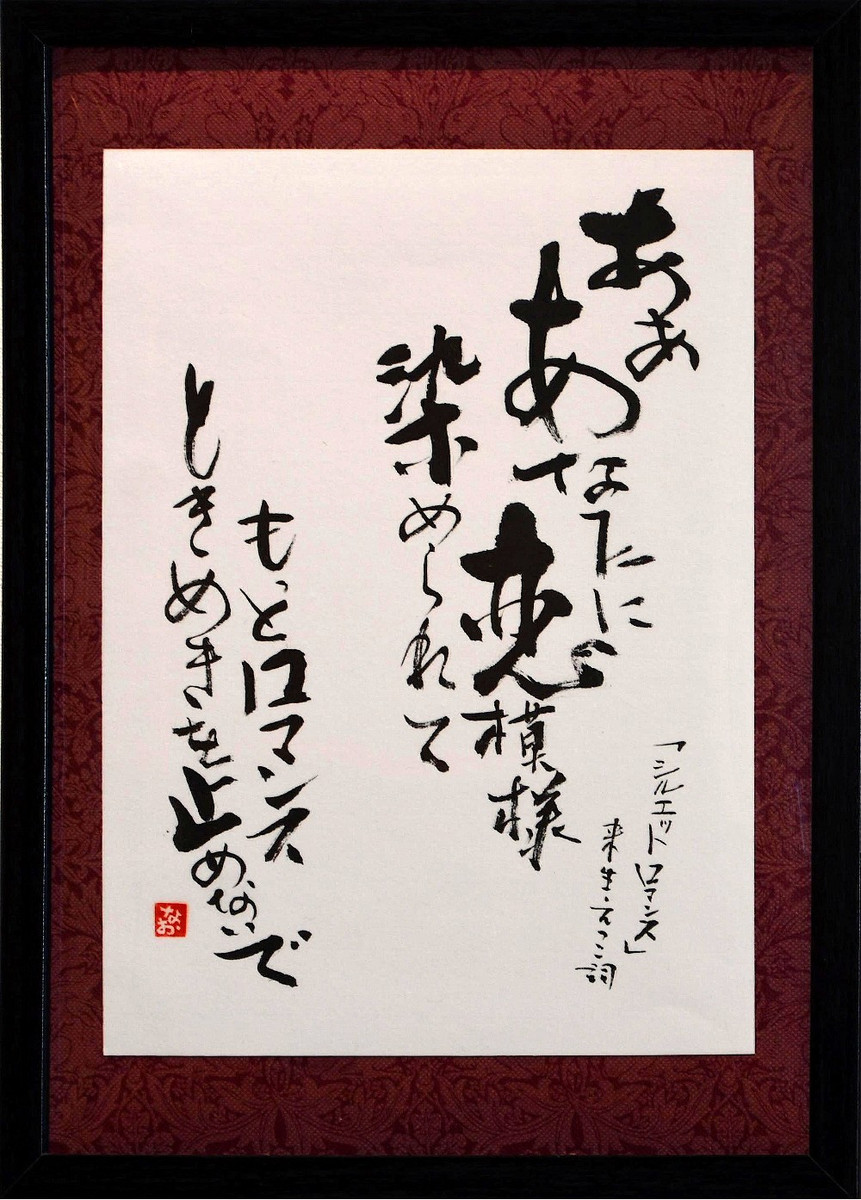 ああ
あなたに
恋模様
染められて
もっとロマンス
ときめきを止めないで
「シルエットロマンス」
来生えつこ詞
なお